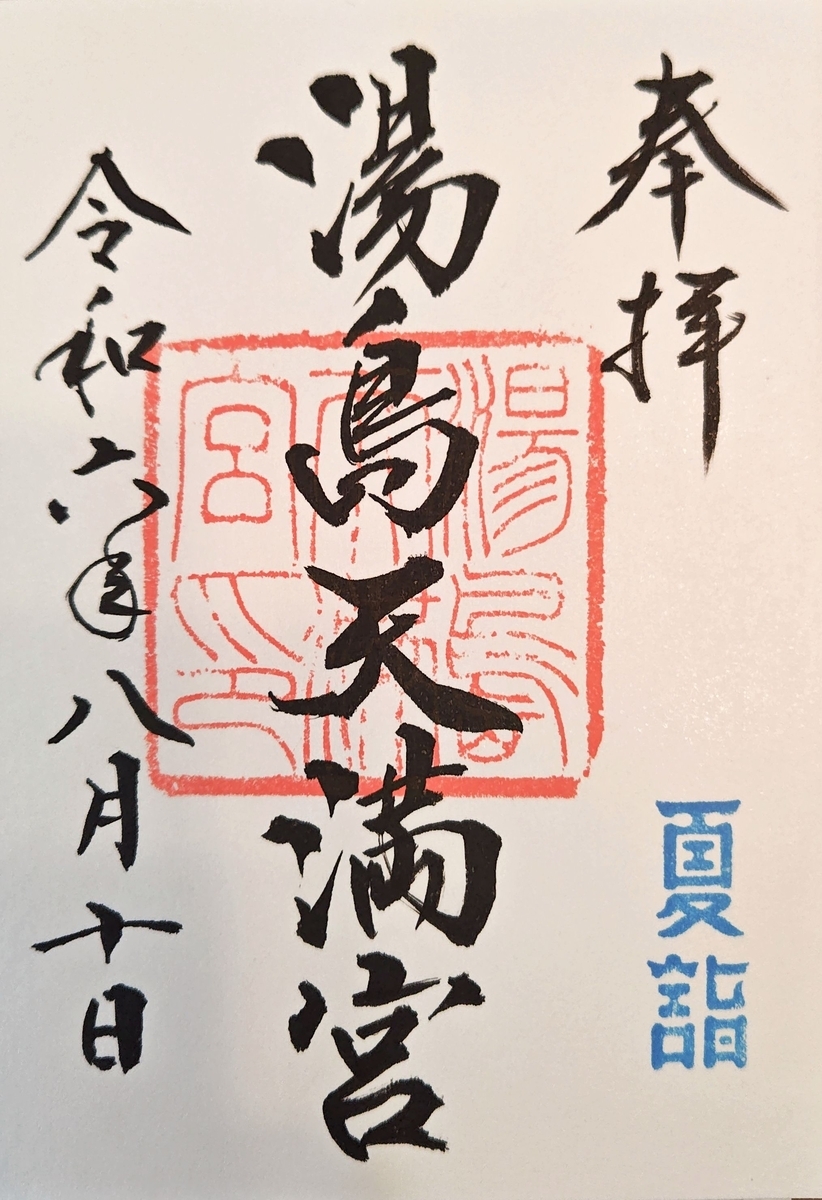 奉拝
夏詣
湯島天満宮
湯島天満宮印
令和六年八月十日